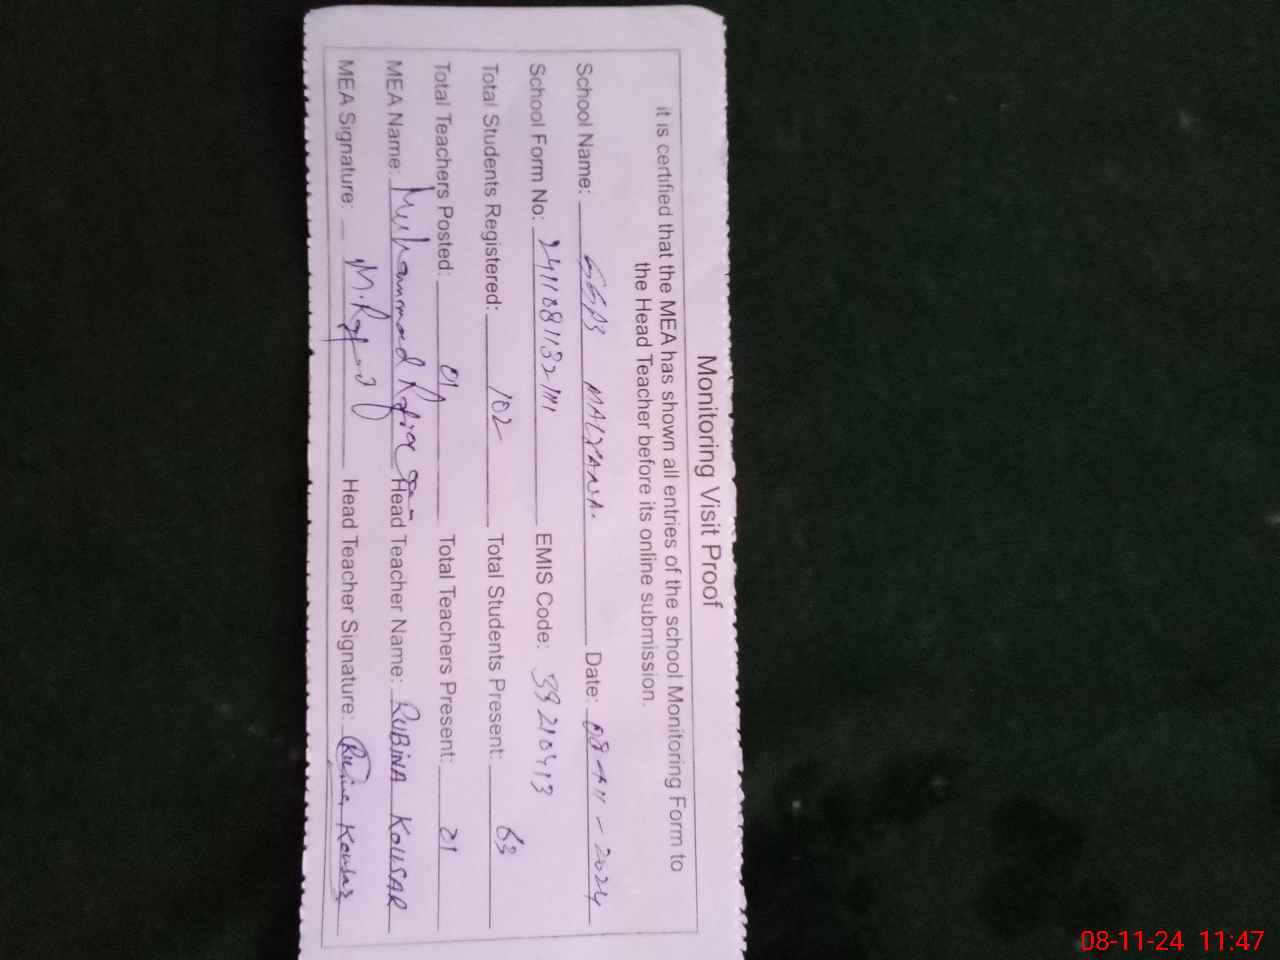 Monitoring Visit Proof
it is certified that the MEA has shown all entries of the school Monitoring Form to
the Head Teacher before its online submission.
School Name: GGPS MALYANA. Date: 08-11-2024
School Form No: EMIS Code: 39210413
Total Students Registered: 102 Total Students Present: 63
Total Teachers Posted: 01 Total Teachers Present: 01
MEA Name: Muhammad Head Teacher Name: RUBINA KOUSAR
MEA Signature: Head Teacher Signature: Rubina Kousar
08-11-24 11:47